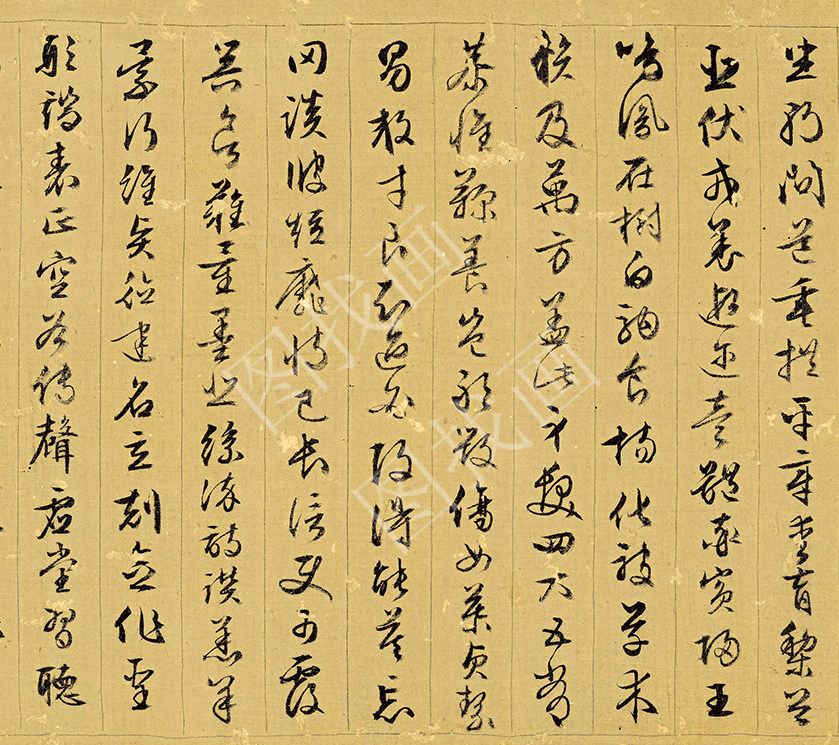 坐朝問道垂拱平章愛育黎首
臣伏戎羌遐迩壹體率賓歸王
鳴鳳在樹白駒食場化被草木
賴及萬方蓋此身髮四大五常
恭惟鞠養豈敢毀傷女慕貞絜
男效才良知過必改得能莫忘
罔談彼短靡恃己長信使可覆
器欲難量墨悲絲染詩讚羔羊
景行維賢德建名立剋念作聖
形端表正空谷傳聲虛堂習聽
图找画
图找画